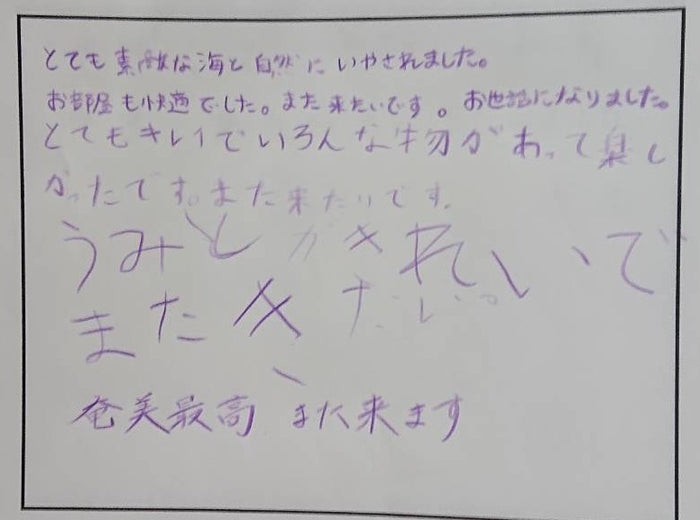 とても素敵な海と自然にいやされました。
お部屋も快適でした。また来たいです。お世話になりました。
とてもキレイでいろんな物があって楽し
かったです。また来たいです。
うみと がきれいで
またきたい。
奄美最高 また来ます